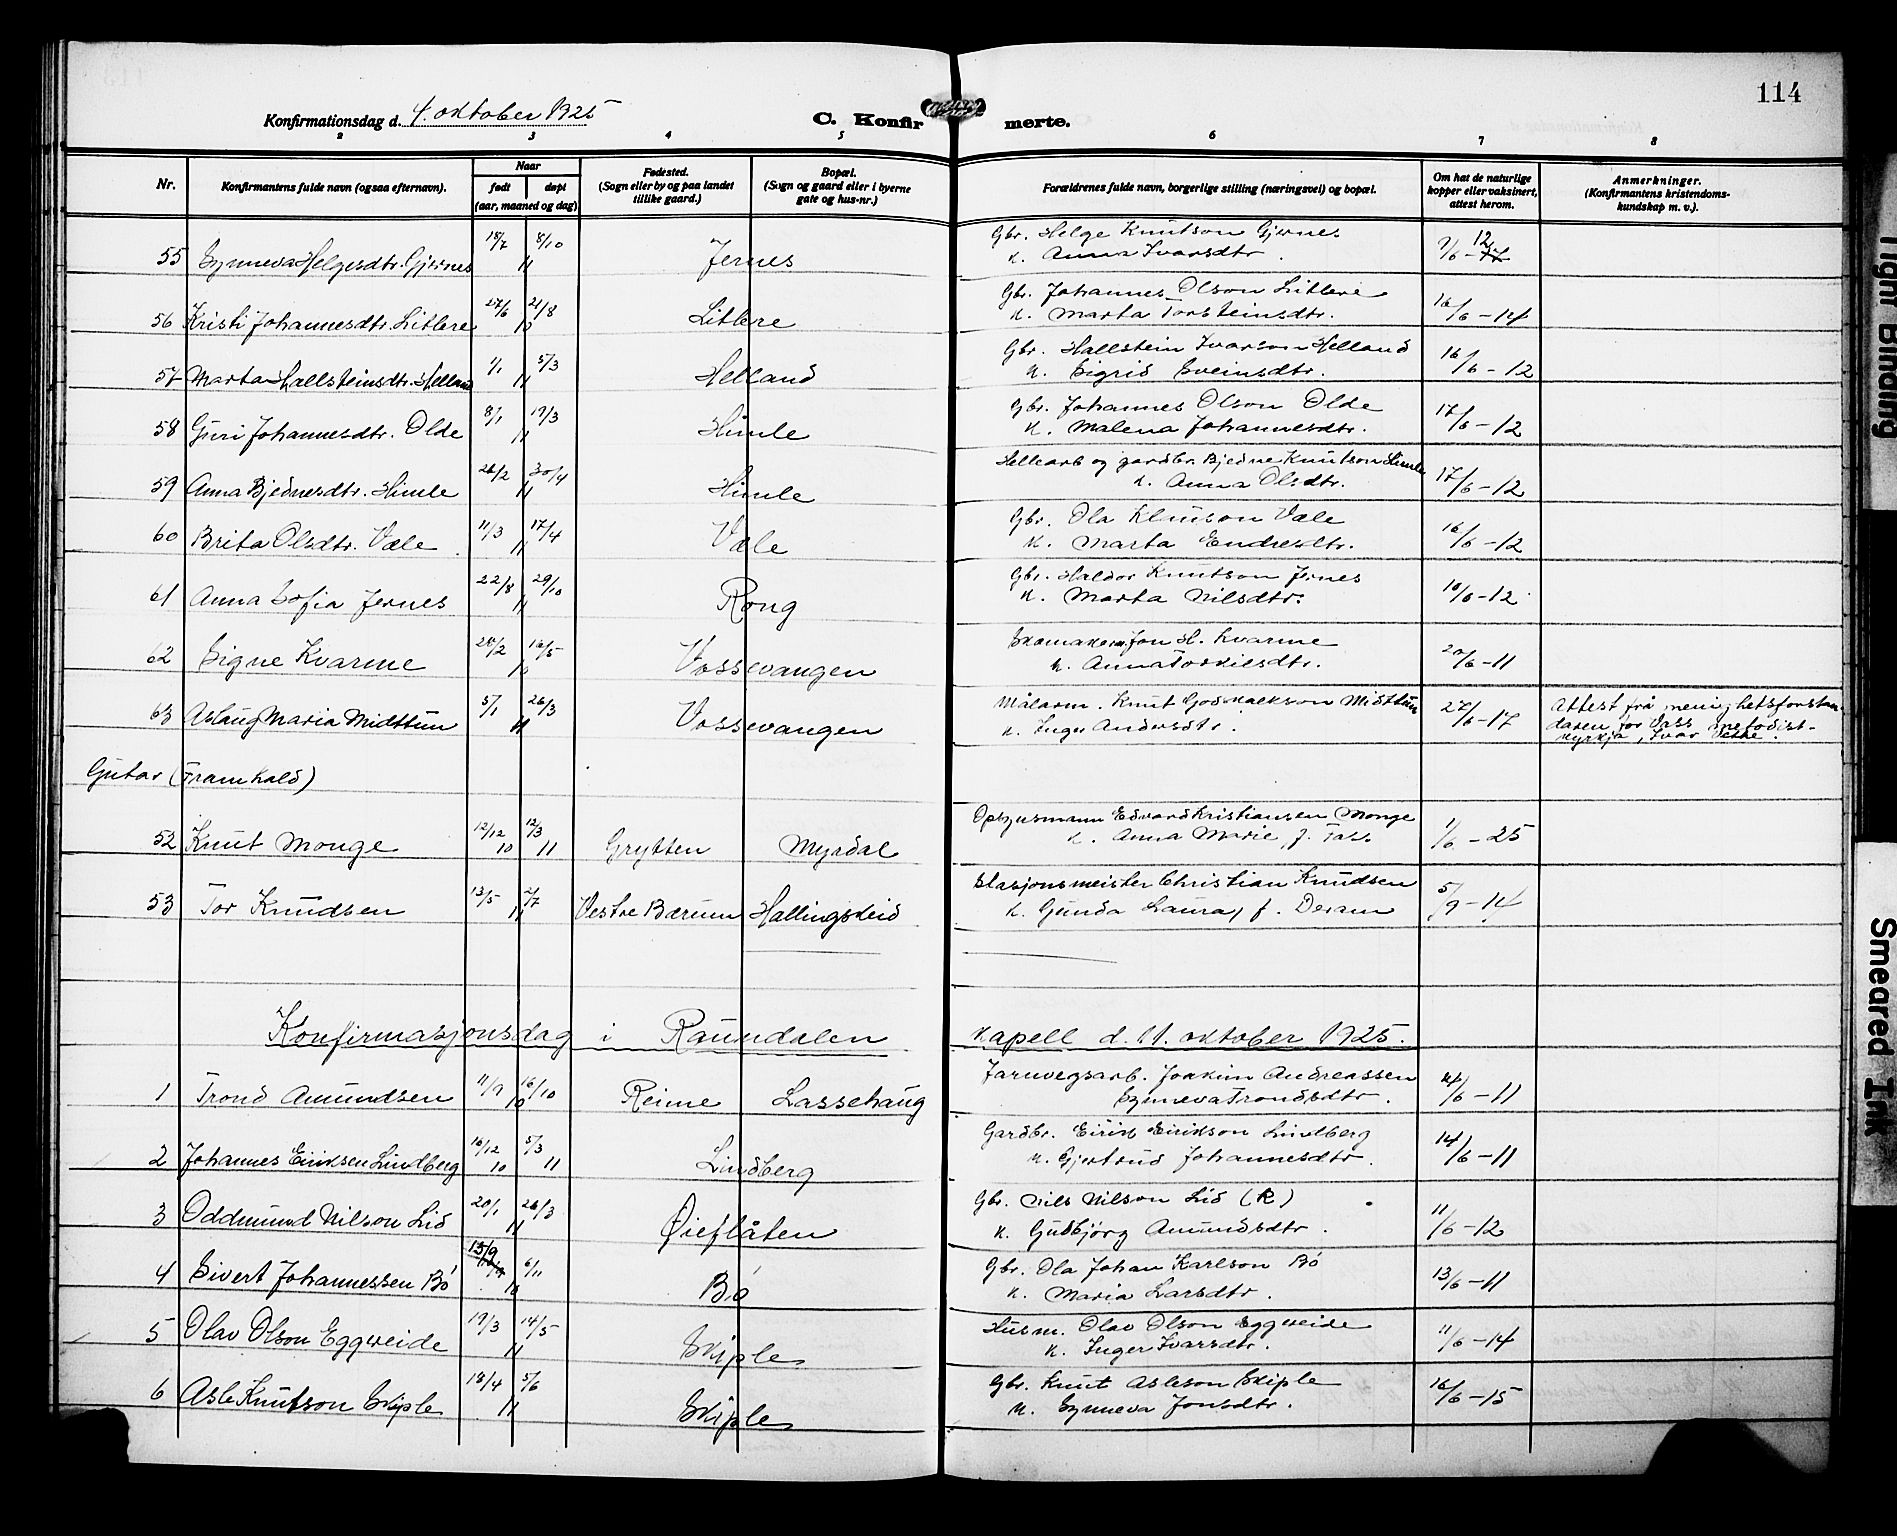 114
Konfirmationsdag d. 4. oktober 1925
C. Konfirmerte.
2 3 4 5 6 7 8
Nr.
Konfirmantens fulde navn (ogsaa efternavn).
Naar
født døpt
(aar, maaned og dag)
Fødested.
(Sogn eller by og paa landet
tillike gaard.)
Bopæl.
(Sogn og gaard eller i byerne
gate og hus-nr.)
Forældrenes fulde navn, borgerlige stilling (næringsvei) og bopæl.
Om hat de naturlige
kopper eller vaksinert,
attest herom.
Anmerkninger.
(Konfirmantens kristendoms-
kundskap m. v.).
55 Synneva Helgesdtr. Gjernes 18/7 8/10 11 Jernes Gbr. Helge Knutson Gjernes
k. Anna Ivarsdtr. 9/6 - 12
56 Kristi Johannesdtr. Litlere 27/6 21/8 10 Litlere Gbr. Johannes Olson Litlere
k. Marta Torsteinsdtr. 16/6 - 14
57 Marta Hallsteinsdtr. Helland 1/1 5/3 11 Helland Gbr. Hallstein Ivarson Helland
k. Sigrid Sveinsdtr. 16/6 - 12
58 Guri Johannesdtr. Olde 8/1 19/3 11 Himle Gbr. Johannes Olson Olde
k. Malena Johannesdtr. 17/6 - 12
59 Anna Bjednesdtr. Himle 26/2 30/4 11 Himle Hellearb og gardbr. Bjedne Knutson Himle
k. Anna Olsdtr. 17/6 - 12
60 Brita Olsdtr. Væle 11/3 17/4 11 Væle Gbr. Ola Klauson Væle
k. Marta Endresdtr. 16/6 - 12
61 Anna Sofia Jernes 22/8 29/10 11 Rong Gbr. Haldor Knutson Jernes
k. Marta Nilsdtr. 10/6 - 12
62 Signe Kvarme 20/2 16/5 10 Vossevangen Skomaker Jon H. Kvarme
k. Anna Torkielsdtr. 20/6 - 11
63 Aslaug Maria Midttun 5/1 26/3 11 Vossevangen Målarm. Knut Godskalkson Midttun
k. Inger Andersdtr. 27/6 - 17 Attest frå menighetsforstan-
daren for Vass metodist-
kyrkja, Ivar Vethe.
Gutar (Framhald)
52 Knut Monge 12/12 10 12/3 11 Grytten Myrdal Opsynsmann Edvard Kristiansen Monge
k. Anna Marie, f. Tass 1/6 - 25
53 Tor Knudsen 13/5 2/7 11 Vestre Bærum Hallingskeid Stasjonsmeister Christian Knudsen
k. Gunda Laura, f. Deram 5/9 - 14
Konfirmasjonsdag i Raundalen kapell d. 11. oktober 1925.
1 Trond Amundsen 11/9 16/10 10 Reime Lassehaug Jarnvegsarb. Joakim Andreassen
Synneva Trondsdtr. 14/6 - 11
2 Johannes Eiriksen Lindberg 16/12 10 5/3 11 Lindberg Gardbr. Eirik Eirikson Lindberg
k. Gjertrud Johannesdtr. 14/6 - 11
3 Oddmund Nilson Lid 20/1 26/3 11 Øieflåten Gbr. Nils Nilson Lid (R)
k. Gudbjörg Amundsdtr. 11/6 - 12
4 Sivert Johannessen Bö 15/9 6/11 10 Bö Gbr. Ola Johan Karlson Bö
k. Maria Larsdtr. 13/6 - 11
5 Olav Olson Eggreide 19/3 14/5 11 Skiple Husm. Olav Olson Eggreide
k. Inger Ivarsdtr. 11/6 - 14
6 Asle Knutson Skiple 18/4 5/6 11 Skiple Gbr. Knut Asleson Skiple
k. Synneva Jonsdtr. 16/6 - 15
Tight Binding
Smeared Ink